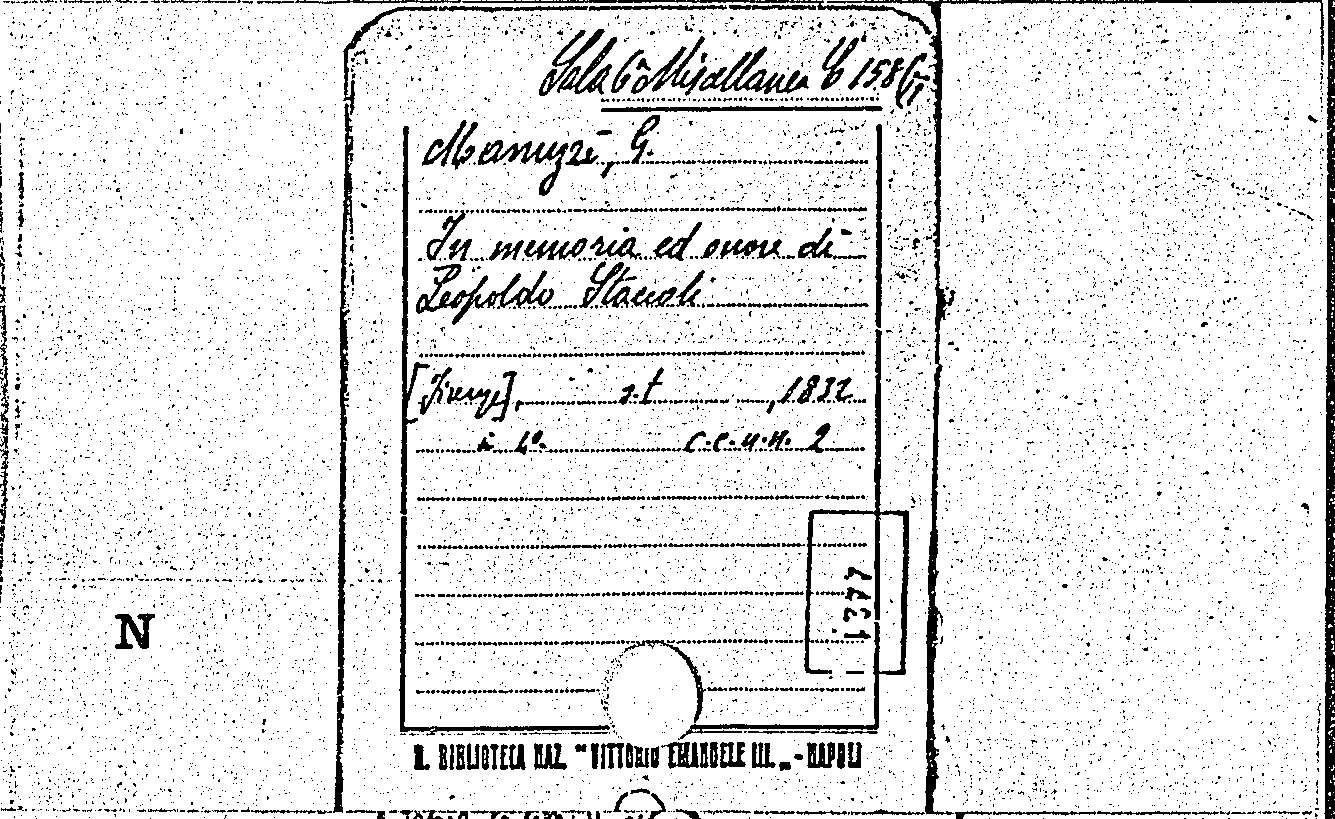 Sala 6ª Miscellanea C 158(11
Manuzzi, G.
In memoria ed onore di
Leopoldo Staccoli
[Firenze], s.t , 1832
in 4º. c.e.u.n. 2
1344
N
R. BIBLIOTECA NAZ. "VITTORIO EMANUELE III." - NAPOLI